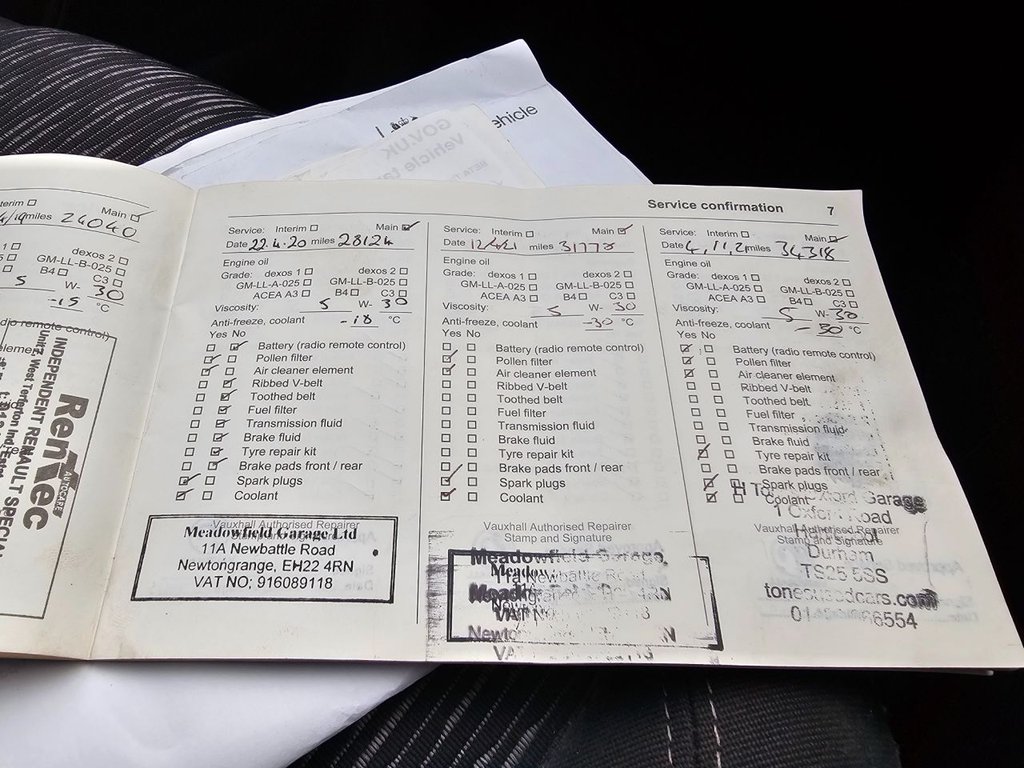 ehicle
GOV.UK
Vehicle ta
Service confirmation 7
terim Main
4/19 miles 24040
dexos 2
GM-LL-B-025
B4 C3
5 W- 30
-15 °C
dio remote control)
elemen
RenTec
AUTOCARE
INDEPENDENT RENAULT SPECIAL
Service: Interim Main
Date 22.4.20 miles 28124
Engine oil
Grade: dexos 1 dexos 2
GM-LL-A-025 GM-LL-B-025
ACEA A3 B4 C3
Viscosity: 5 W- 30
Anti-freeze, coolant -18 °C
Yes No
Battery (radio remote control)
Pollen filter
Air cleaner element
Ribbed V-belt
Toothed belt
Fuel filter
Transmission fluid
Brake fluid
Tyre repair kit
Brake pads front / rear
Spark plugs
Coolant
Vauxhall Authorised Repairer
Stamp and Signature
Meadowfield Garage Ltd
11A Newbattle Road
Newtongrange, EH22 4RN
VAT NO; 916089118
Service: Interim Main
Date miles 31778
Engine oil
Grade: dexos 1 dexos 2
GM-LL-A-025 GM-LL-B-025
ACEA A3 B4 C3
Viscosity: 5 W- 30
Anti-freeze, coolant -30 °C
Yes No
Battery (radio remote control)
Pollen filter
Air cleaner element
Ribbed V-belt
Toothed belt
Fuel filter
Transmission fluid
Brake fluid
Tyre repair kit
Brake pads front / rear
Spark plugs
Coolant
Vauxhall Authorised Repairer
Stamp and Signature
Meadowfield Garage
Service: Interim Main
Date 4,11,21 miles 34,318
Engine oil
Grade: dexos 1 dexos 2
GM-LL-A-025 GM-LL-B-025
ACEA A3 B4 C3
Viscosity: 5 W- 30
Anti-freeze, coolant - 30 °C
Yes No
Battery (radio remote control)
Pollen filter
Air cleaner element
Ribbed V-belt
Toothed belt
Fuel filter
Transmission fluid
Brake fluid
Tyre repair kit
Brake pads front / rear
Spark plugs
Coolant
Vauxhall Authorised Repairer
Stamp and Signature
Oxford Garage
1 Oxford Road
Durham
TS25 5SS
6554